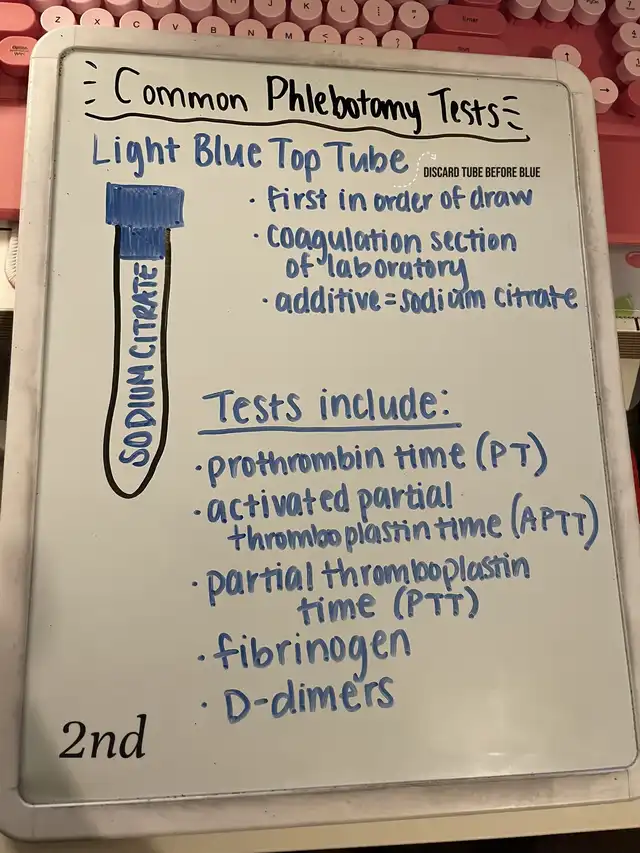 Common Phlebotomy Tests
Light Blue Top Tube
DISCARD TUBE BEFORE BLUE
• First in order of draw
• coagulation section
of laboratory
• additive = sodium citrate
SODIUM CITRATE
Tests include:
• prothrombin time (PT)
• activated partial
thromboplastin time (APTT)
• partial thromboplastin
time (PTT)
• fibrinogen
• D-dimers
2nd